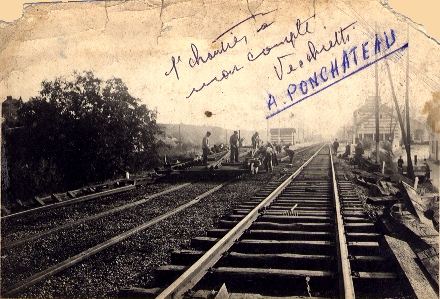 1er chantier à
mon compte
Vecchietti
A. PONCHATEAU